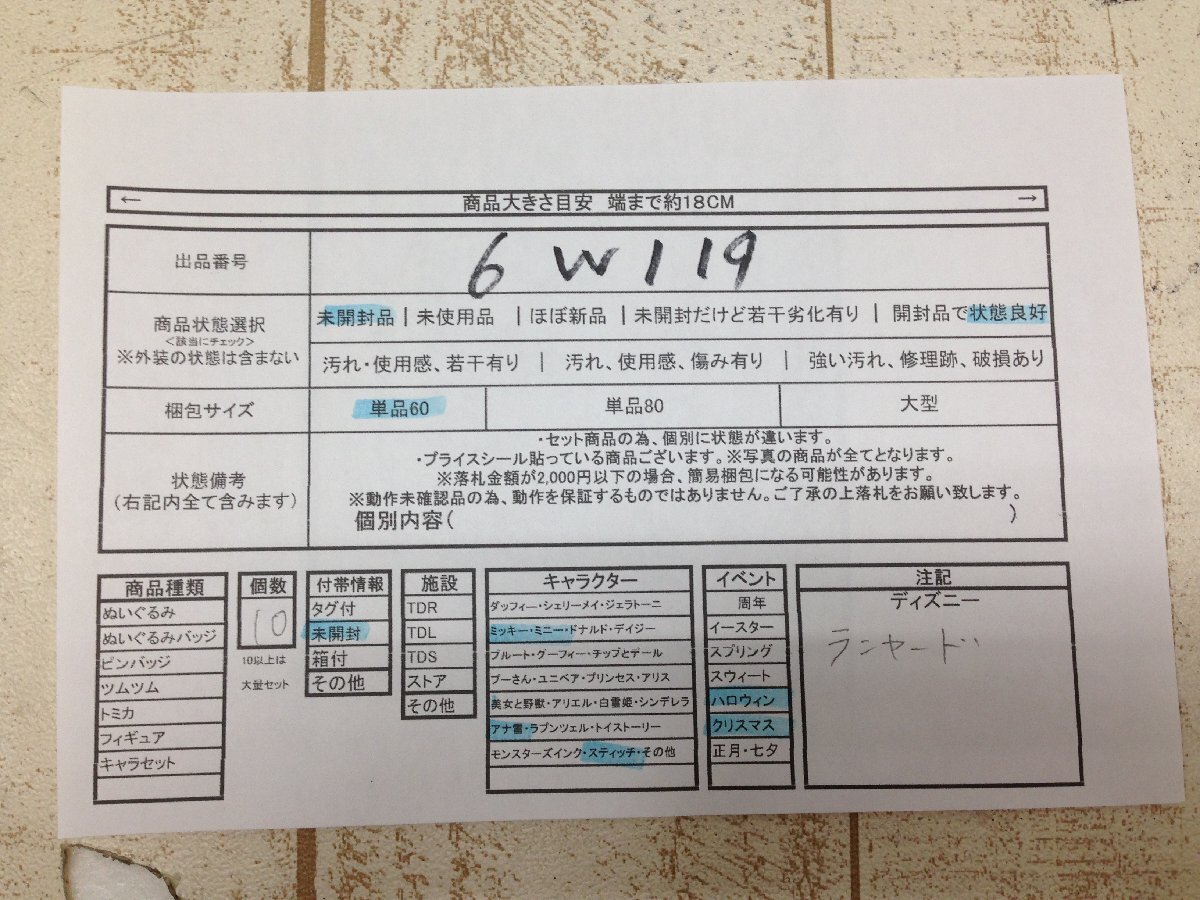 ← 商品大きさ目安 端まで約18CM →
出品番号 6 W 1 19
商品状態選択
<該当にチェック>
※外装の状態は含まない
未開封品 | 未使用品 | ほぼ新品 | 未開封だけど若干劣化有り | 開封品で状態良好
汚れ・使用感、若干有り | 汚れ、使用感、傷み有り | 強い汚れ、修理跡、破損あり
梱包サイズ 単品60 単品80 大型
状態備考
(右記内全て含みます)
・セット商品の為、個別に状態が違います。
・プライスシール貼っている商品ございます。※写真の商品が全てとなります。
※落札金額が2,000円以下の場合、簡易梱包になる可能性があります。
※動作未確認品の為、動作を保証するものではありません。ご了承の上落札をお願い致します。
個別内容( )
商品種類
ぬいぐるみ
ぬいぐるみバッジ
ピンバッジ
ツムツム
トミカ
フィギュア
キャラセット
個数
10
10以上は
大量セット
付帯情報
タグ付
未開封
箱付
その他
施設
TDR
TDL
TDS
ストア
その他
キャラクター
ダッフィー・シェリーメイ・ジェラトーニ
ミッキー・ミニー・ドナルド・デイジー
プルート・グーフィー・チップとデール
プーさん・ユニベア・プリンセス・アリス
美女と野獣・アリエル・白雪姫・シンデレラ
アナ雪・ラプンツェル・トイストーリー
モンスターズインク・スティッチ・その他
イベント
周年
イースター
スプリング
スウィート
ハロウィン
クリスマス
正月・七夕
注記
ディズニー
ランヤード